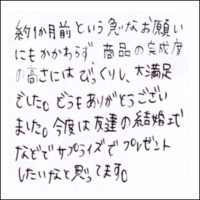 約1か月前という急なお願い
にもかかわらず、商品の完成度
の高さにはびっくりし、大満足
でした。どうもありがとうござい
ました。今度は友達の結婚式
などでサプライズでプレゼント
したいなと思ってます。